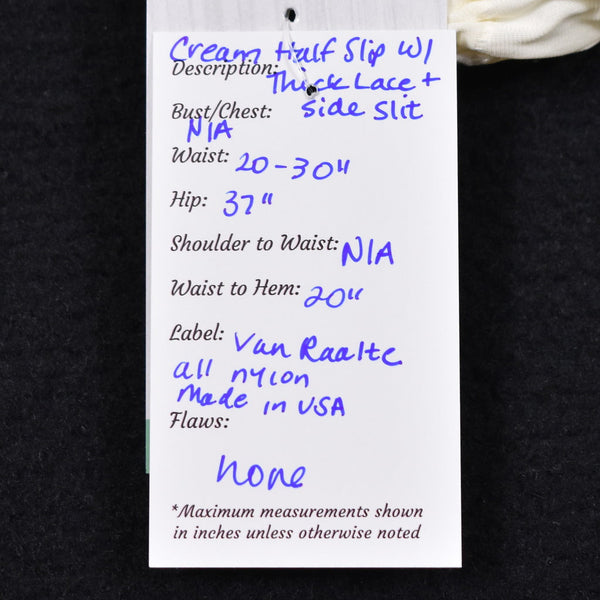 Cream Half Slip W/
Description: Thick Lace +
Bust/Chest: side slit
N/A
Waist: 20-30"
Hip: 37"
Shoulder to Waist: N/A
Waist to Hem: 20"
Label: Van Raalte
all nylon
Made in USA
Flaws:
none
*Maximum measurements shown
in inches unless otherwise noted